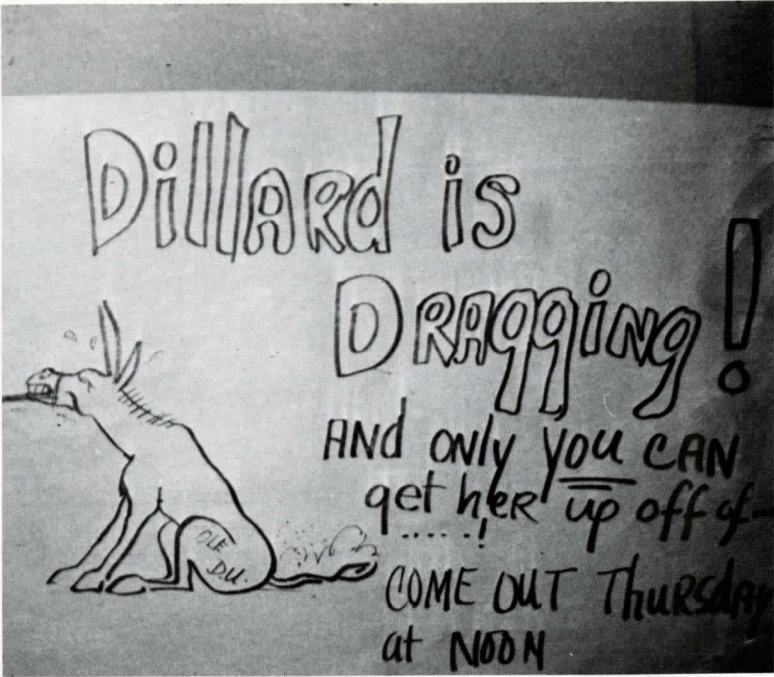 DillARd is
DRAggiNg!
ANd only you CAN
get hER up off of--
.....!
OLE
D.U.
COME OUT ThURSdAY
at NOON